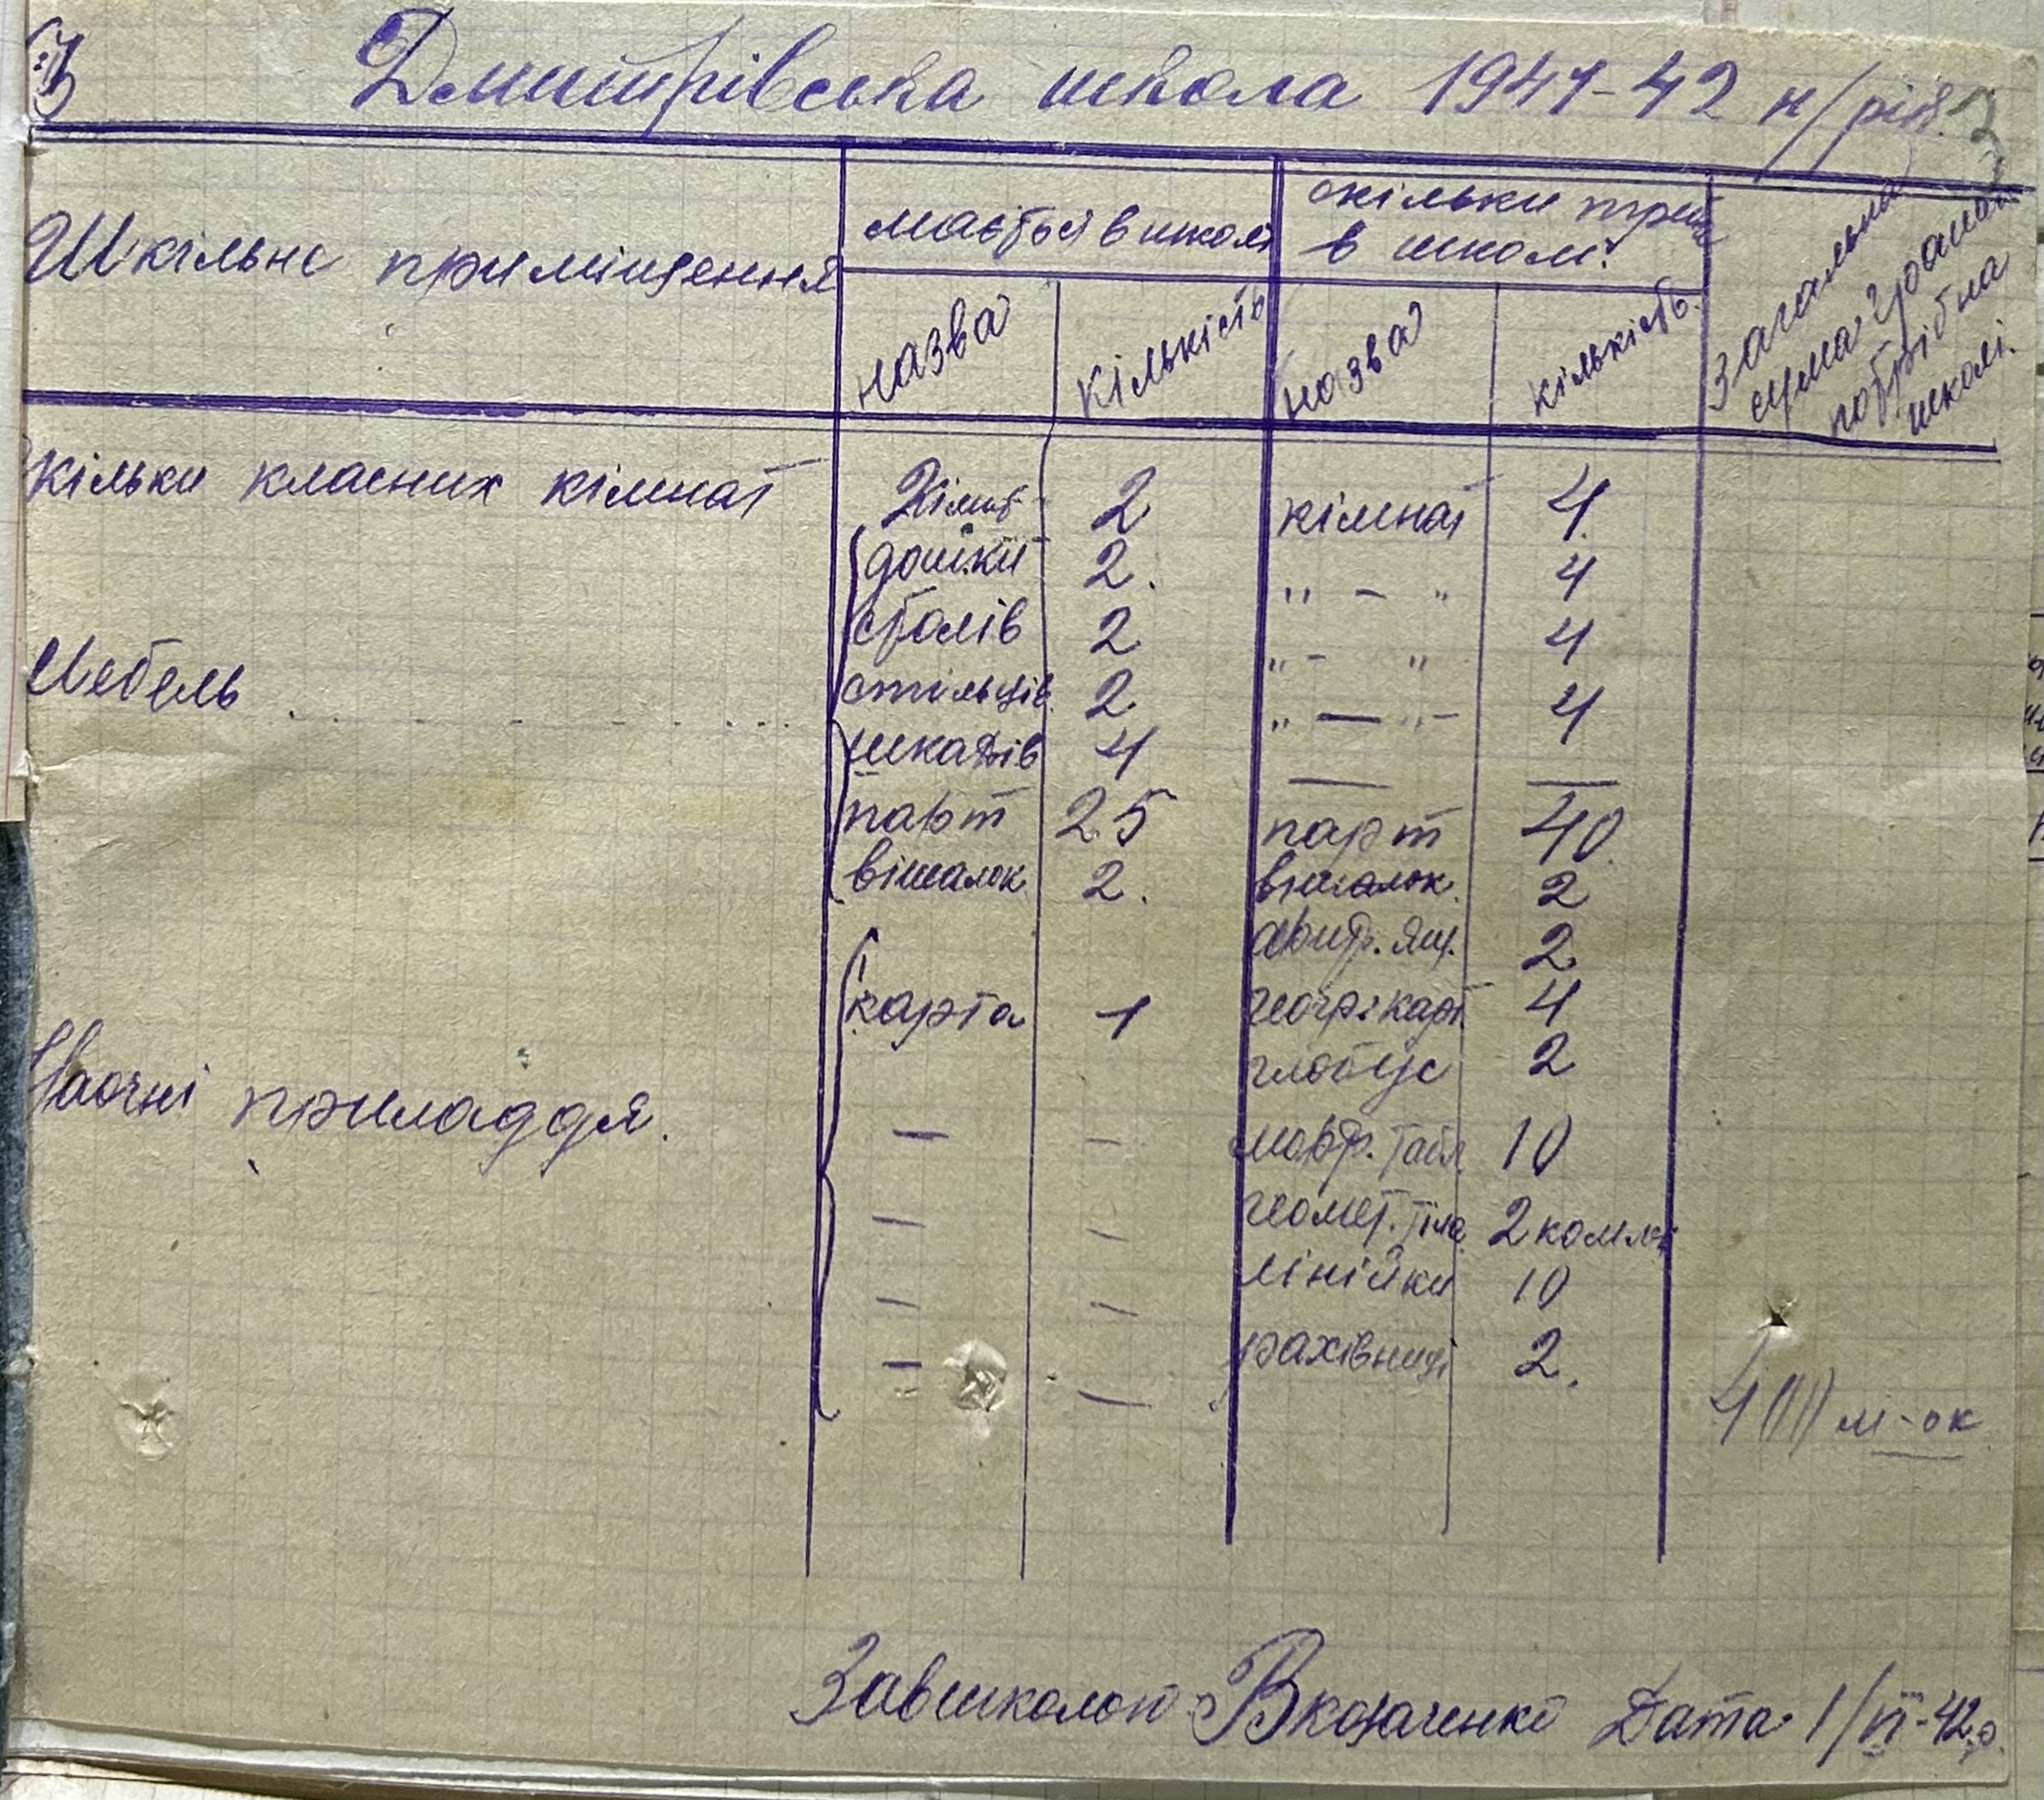 Дмитрівська школа 1941-42 н/рік.
Шкільне приміщення
мається в школі
скільки треба
в школі.
назва
кількість
назва
кількість.
загальна
сума грошей
потрібна
школі.
Скільки класних кімнат Кімнат 2 кімнат 4
дошки 2. „ — „ 4
столів 2 „ - „ 4
Мебель стільців. 2 „ — „ 4
шкафів 4 — —
парт 25 парт 40
вішалок 2. вішалок. 2
арит. ящ. 2
карта 1 географ карт 4
глобус 2
Наочні приладдя. — — табл. 10
— — геомет. тіла 2 компл
— — лінійки 10
— — рахівниці 2.
400 м-ок
Завшколою В Козаченко Дата 1/VI-42 р.